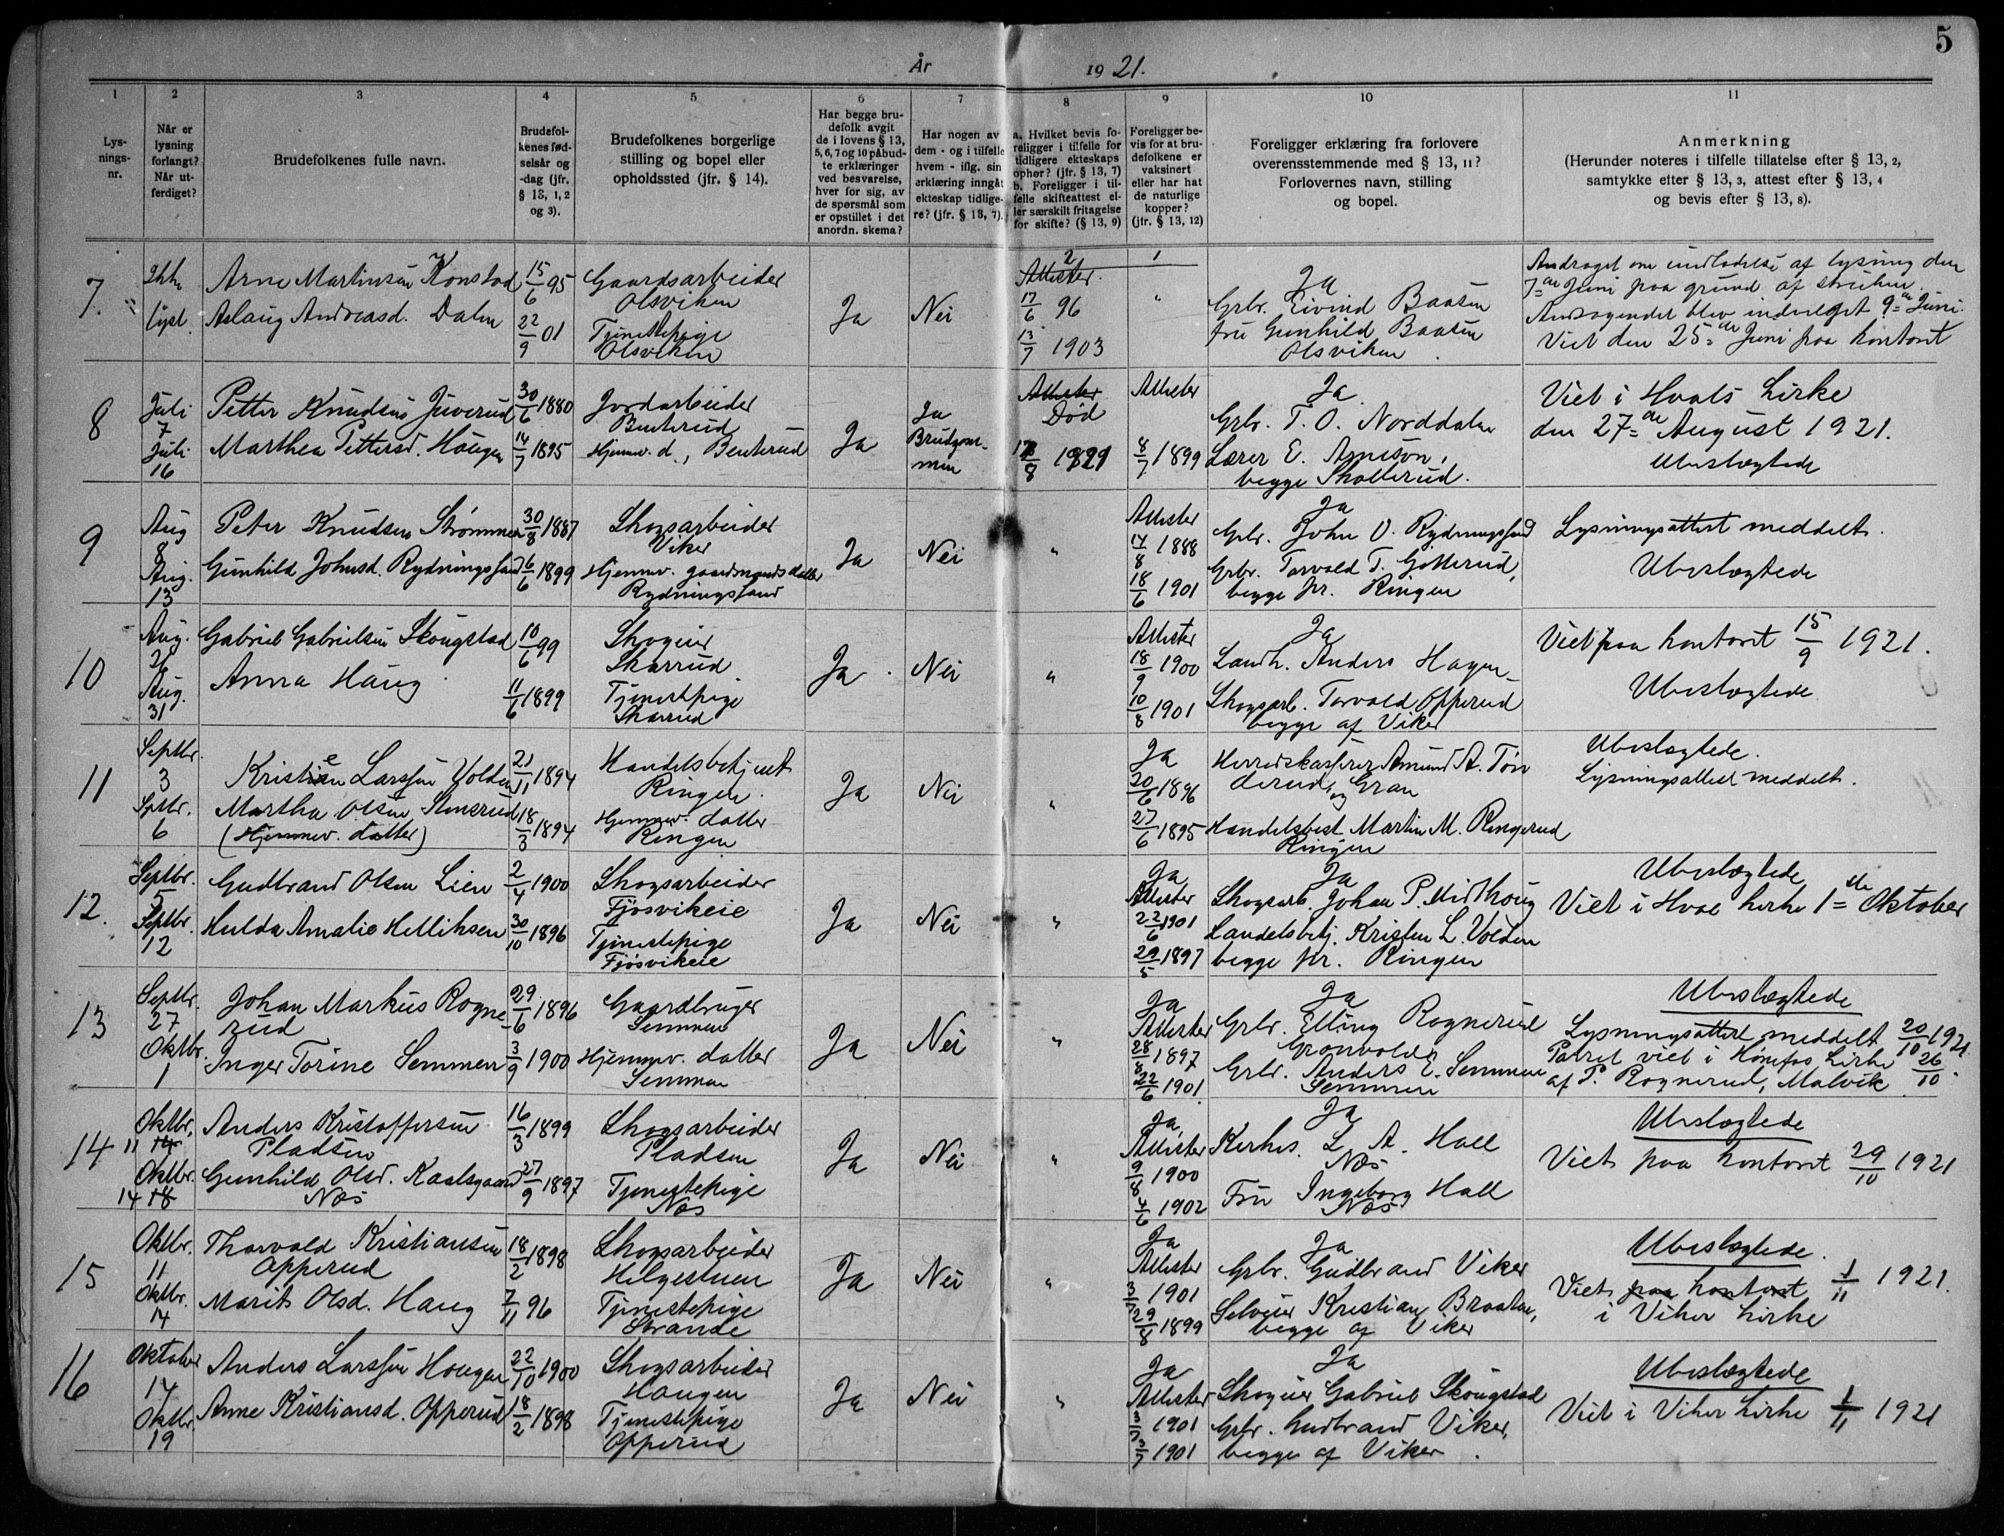 5
År 1921.
1
Lys-
nings-
nr.
2
Når er
lysning
forlangt?
Når ut-
ferdiget?
3
Brudefolkenes fulle navn.
4
Brudefol-
kenes fød-
selsår og
-dag (jfr.
§ 13, 1, 2
og 3).
5
Brudefolkenes borgerlige
stilling og bopel eller
opholdssted (jfr. § 14).
6
Har begge bru-
defolk avgit
de i lovens § 13,
5, 6, 7 og 10 påbud-
te erklæringer
ved besvarelse,
hver for sig, av
de spørsmål som
er opstillet i det
anordn. skema?
7
Har nogen av
dem - og i tilfelle
hvem - iflg. sin
erklæring inngåt
ekteskap tidlige-
re? (jfr. § 13, 7).
8
a. Hvilket bevis fo-
religger i tilfelle for
tidligere ekteskaps
ophør? (jfr. § 13, 7)
b. Foreligger i til-
felle skifteattest el-
ler særskilt fritagelse
for skifte? (§ 13, 9)
9
Foreligger be-
vis for at bru-
defolkene er
vaksinert
eller har hat
de naturlige
kopper?
(jfr. § 13, 12)
10
Foreligger erklæring fra forlovere
overensstemmende med § 13, 11?
Forlovernes navn, stilling
og bopel.
11
Anmerkning
(Herunder noteres i tilfelle tillatelse efter § 13, 2,
samtykke efter § 13, 3, attest efter § 13, 4
og bevis efter § 13, 8).
7.
Ikke
lyst.
Arne Martinsen Konstad
Aslaug Andreasd. Dalen
15/6 95
22/9 01
Gaardsarbeider
Olsviken
Tjenestepige
Olsviken
Ja
Nei
2
Attester.
17/6 96
13/7 1903
1
"
Ja
Grbr. Eivind Baasen
fru Gunhild Baasen
Olsviken
Andraget om undladelse af lysning den
7de Juni paa grund af streiken.
Andragendet blev indvilget 9de Juni.
Viet den 25de Juni paa kontoret
8
Juli
7
Juli
16
Petter Knudsen Juverud
Marthea Pettersd. Haugen
30/6 1880
14/7 1895
Jordarbeider
Benterud
Hjemmev. d., Benterud
Ja
Ja
Brudgom-
men
Attester
Død
8 1921
Attester
8/7 1899
Ja
Grbr. T. O. Norddalen
Lærer E. Arneson,
begge Skollerud.
Viet i Hvals kirke
den 27de August 1921.
Ubeslægtede
9
Aug
8
Aug.
13
Peter Knudsen Strømmen
Gunhild Johnsd. Rydningsland
30/8 1887
6/6 1899
Skogsarbeider
Viker
Hjemmev. gaardmandsdatter
Rydningsland
Ja
Nei
"
Attester
14/8 1888
18/6 1901
Ja
Grbr. John O. Rydningsland
Grbr. Torvald T. Götterud,
begge pr. Ringen
Lysningsattest meddelt.
Ubeslægtede
10
Aug.
26
Aug.
31
Gabriel Gabrielsen Skougstad
Anna Haug
10/6 99
11/6 1899
Skogeier
Skarrud
Tjenestepige
Skarrud
Ja
Nei
"
Attester
18/9 1900
10/8 1901
Ja
Landh. Anders Hagen
Skogsarb. Torvald Opperud
begge af Viker
Viet paa kontoret 15/9 1921.
Ubeslægtede
11
Septbr.
3
Sptbr.
6
Kristen Larssen Volden
Martha Olsen Stensrud
(Hjemmev. datter)
21/11 1894
18/3 1894
Handelsbetjent
Ringen.
Hjemmev. datter
Ringen
Ja
Nei
"
Ja
20/6 1896
27/6 1895
Herredskasserer Amund A. Tøn
derud, og Gran
Handelsbest. Martin M. Ringerud
Ringen
Ubeslægtede.
Lysningsattest meddelt.
12.
Septbr.
5
Septbr.
12
Gudbrand Olsen Lien
Hulda Amalie Helliksen
2/4 1900
30/10 1896
Skogsarbeider
Fjøsvikeie
Tjenestepige
Fjøsvikeie
Ja
Nei
"
Ja
Attester
22/6 1901
29/5 1897
Ja
Skogsarb. Johan P. Midthaug
Landelsbetj. Kristen L. Volden
begge pr. Ringen
Ubeslægtede
Viet i Hval kirke 1ste Oktober
13
Septbr.
27
Oktbr.
1
Johan Markus Rogne
rud
Inger Torine Semmen
29/6 1896
3/9 1900
Gaardbruger
Semmen
Hjemmev. datter
Semmen
Ja
Nei
"
Ja
Attester
28/8 1897
22/6 1901
Ja
Grbr. Elling Rognerud
Grønvold
Grbr. Anders E. Semmen
Semmen
Ubeslægtede
Lysningsattest meddelt 20/10 1921
Paret viet i Hønefos kirke 26/10.
af P. Rognerud, Malvik
14
Oktbr.
11 14
Oktbr.
14 18
Anders Kristoffersen
Pladsen
Gunhild Olsd. Kaalsgaard
Næs
16/3 1899
27/9 1897
Skogsarbeider
Pladsen
Tjenestepige
Næs
Ja
Nei
"
Ja,
Attester
9/8 1900
3/6 1902
Ja
Kirkes. L. A. Hall
Næs
Fru Ingeborg Hall
Næs
Ubeslægtede
Viet paa kontoret 29/10 1921
15
Oktbr.
11
Oktbr.
14
Thorvald Kristiansen
Opperud
Marit Olsd. Haug
18/2 1898
7/11 96
Skogsarbeider
Helgestuen
Tjenestepige
Strande
Ja
Nei
"
Ja
Attester
1901
9/8 1899
Ja
Grbr. Gudbrand Viker
Selveier Kristian Braaten,
begge af Viker
Ubeslægtede.
Viet paa kontoret 1/11 1921.
i Viker kirke
16
Oktober
14
Oktbr.
19
Anders Larssen Haugen
Anne Kristiansd. Opperud
22/10 1900
18/2 1898
Skogsarbeider
Haugen
Tjenestepige
Opperud
Ja
Nei
"
Ja
Attester
1901
1901
Ja
Skogeier Gabriel Skougstad
Grbr. Gudbrand Viker,
begge af Viker.
Ubeslægtede
Viet i Viker kirke 1/11 1921